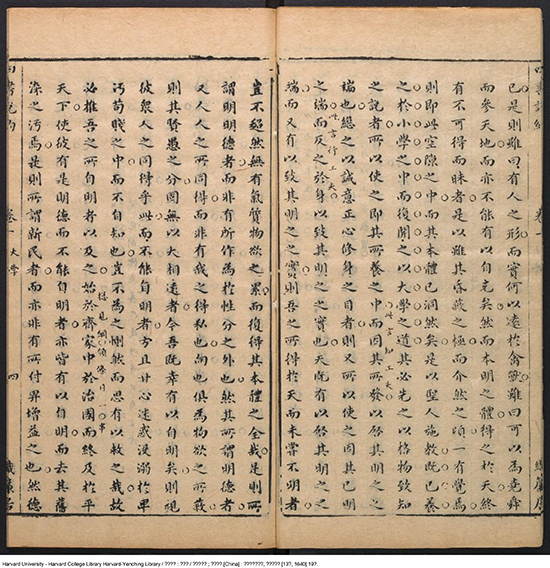 已是則雖曰有人之形而實何以遠於禽獸雖曰可以為堯舜
而參天地而亦不能有以自充矣然而本明之體得之於天終
有不可得而昧者是以雖其昏蔽之極而介然之頃一有覺焉
則即此空隙之中而其本體已洞然矣是以聖人施教既已養
之於小學之中而後開之以大學之道其必先之以格物致知
此言知工夫
之說者所以使之即其所養之中而因其所發以啟其明之
端也繼之以誠意正心修身之目者則又所以使之因其已明
此言行工夫
之端而反之於身以致其明之之實也夫既有以啟其明之之
端而又有以致其明之之實則吾之所得於天而未嘗不明者
豈不超然無有氣質物欲之累而復得其本體之全哉是則所
謂明明德者而非有所作為於性分之外也然其所謂明德者
又人人之所同得而非有我之得私也向也俱為物欲之所蔽
則其賢愚之分固無以大相遠者今吾既幸有以自明矣則視
彼眾人之同得乎此而不能自明者方且甘心迷惑沒溺於卑
污苟賤之中而不自知也豈不為之惻然而思有以救之哉故
必推吾之所自明者以及之始於齊家中於治國而終及於平
天下使彼有是明德而不能自明者亦皆有以自明而去其舊
染之污焉是則所謂新民者而亦非有所付畀增益之也然德
卷一 大學 四
Harvard University - Harvard College Library Harvard-Yenching Library / ???? : ??? / ????? ; ????.[China] : ???????, ????? [137, 1640] 197.